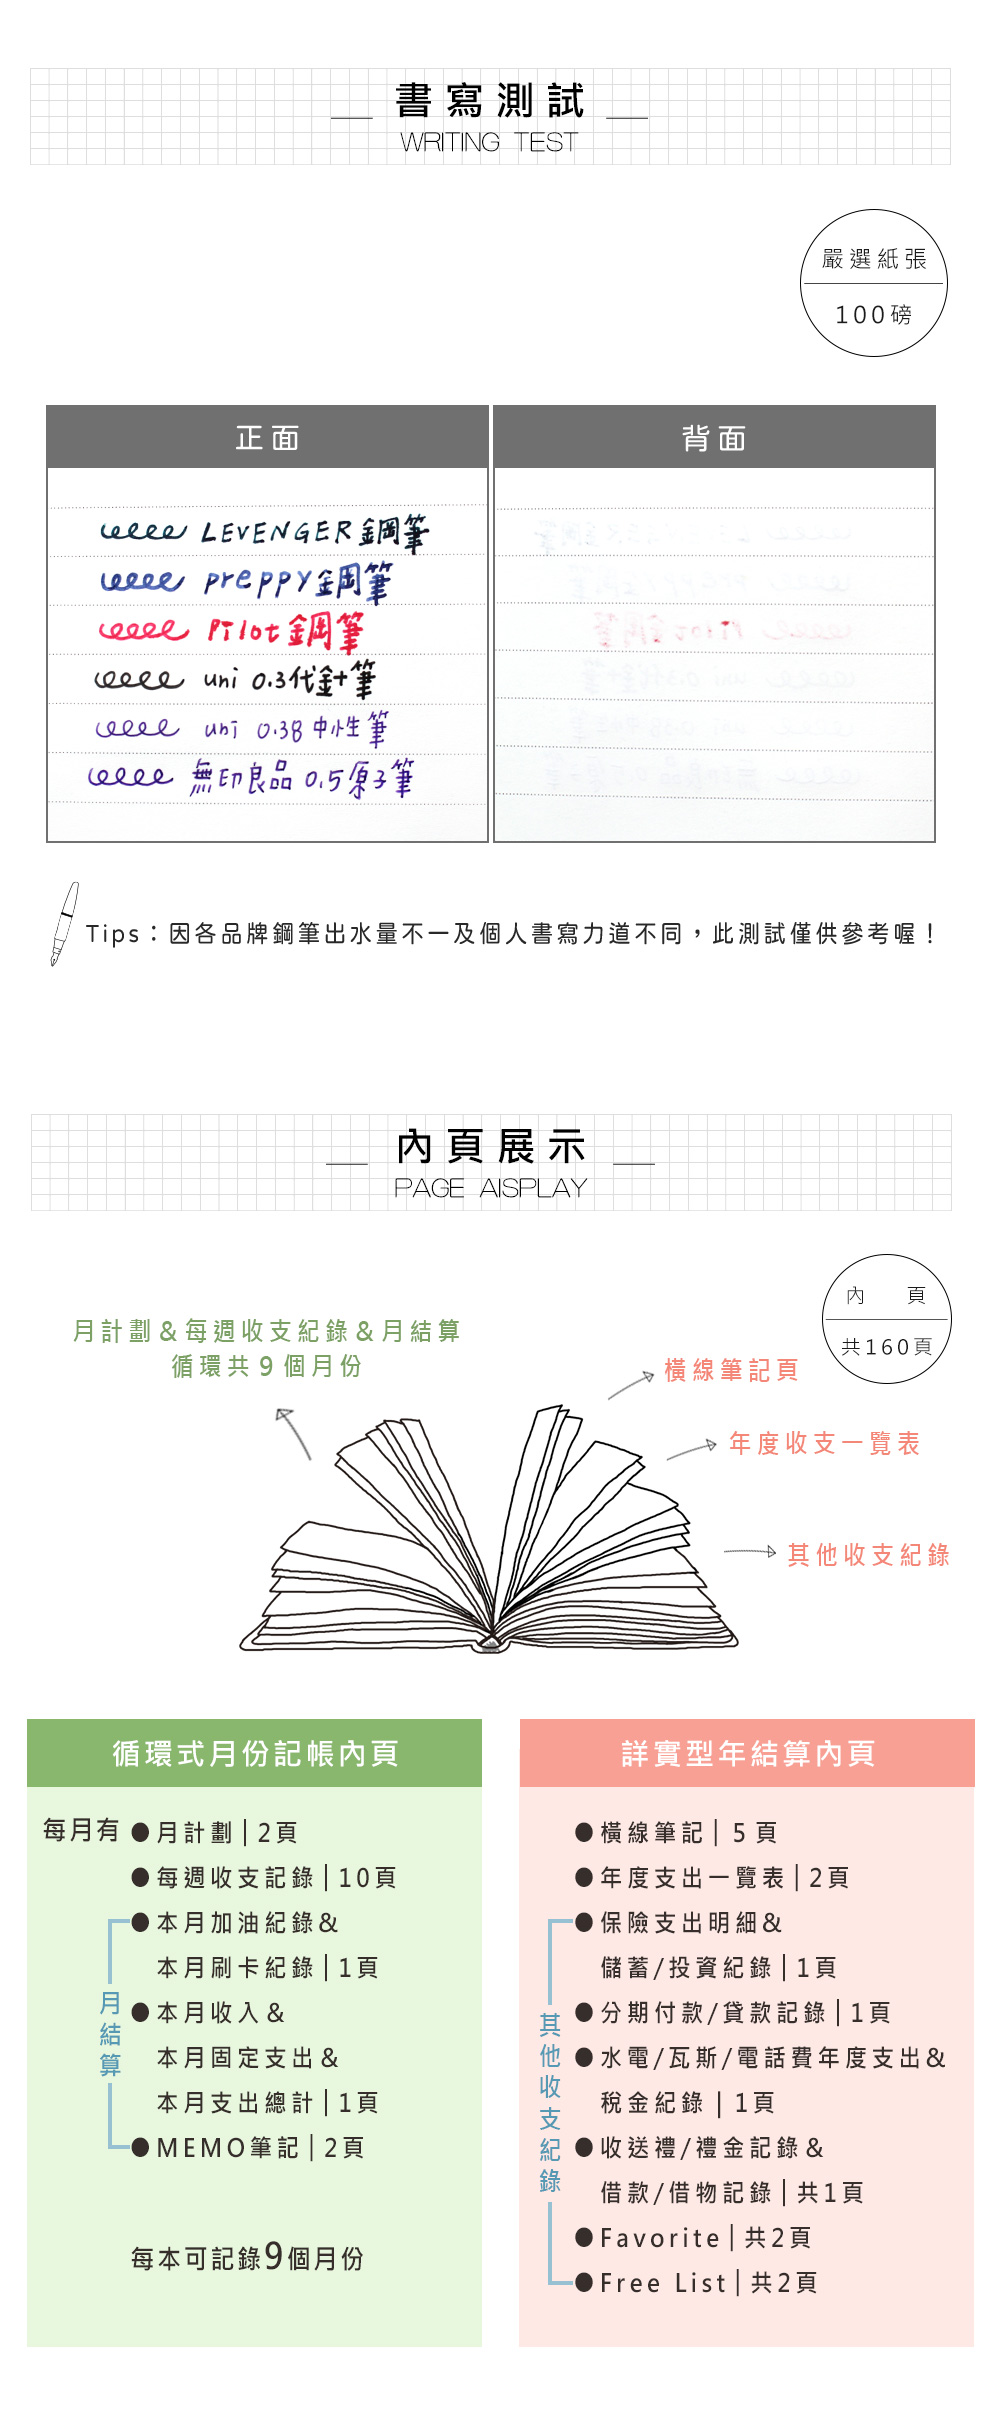 書寫測試
WRITING TEST
嚴選紙張
100磅
正面
背面
LEVENGER 鋼筆
preppy 鋼筆
Pilot 鋼筆
uni 0.3代針筆
uni 0.38 中性筆
無印良品 0.5原子筆
Tips：因各品牌鋼筆出水量不一及個人書寫力道不同，此測試僅供參考喔！
內頁展示
PAGE AISPLAY
內 頁
共160頁
月計劃&每週收支紀錄&月結算
循環共9個月份
橫線筆記頁
年度收支一覽表
其他收支紀錄
循環式月份記帳內頁
每月有 ●月計劃|2頁
●每週收支記錄|10頁
●本月加油紀錄&
本月刷卡紀錄|1頁
●本月收入&
本月固定支出&
本月支出總計|1頁
●MEMO筆記|2頁
月結算
每本可記錄9個月份
詳實型年結算內頁
●橫線筆記| 5 頁
●年度支出一覽表|2頁
●保險支出明細&
儲蓄/投資紀錄|1頁
●分期付款/貸款記錄|1頁
●水電/瓦斯/電話費年度支出&
稅金紀錄 | 1頁
●收送禮/禮金記錄&
借款/借物記錄|共1頁
●Favorite|共2頁
●Free List|共2頁
其他收支紀錄